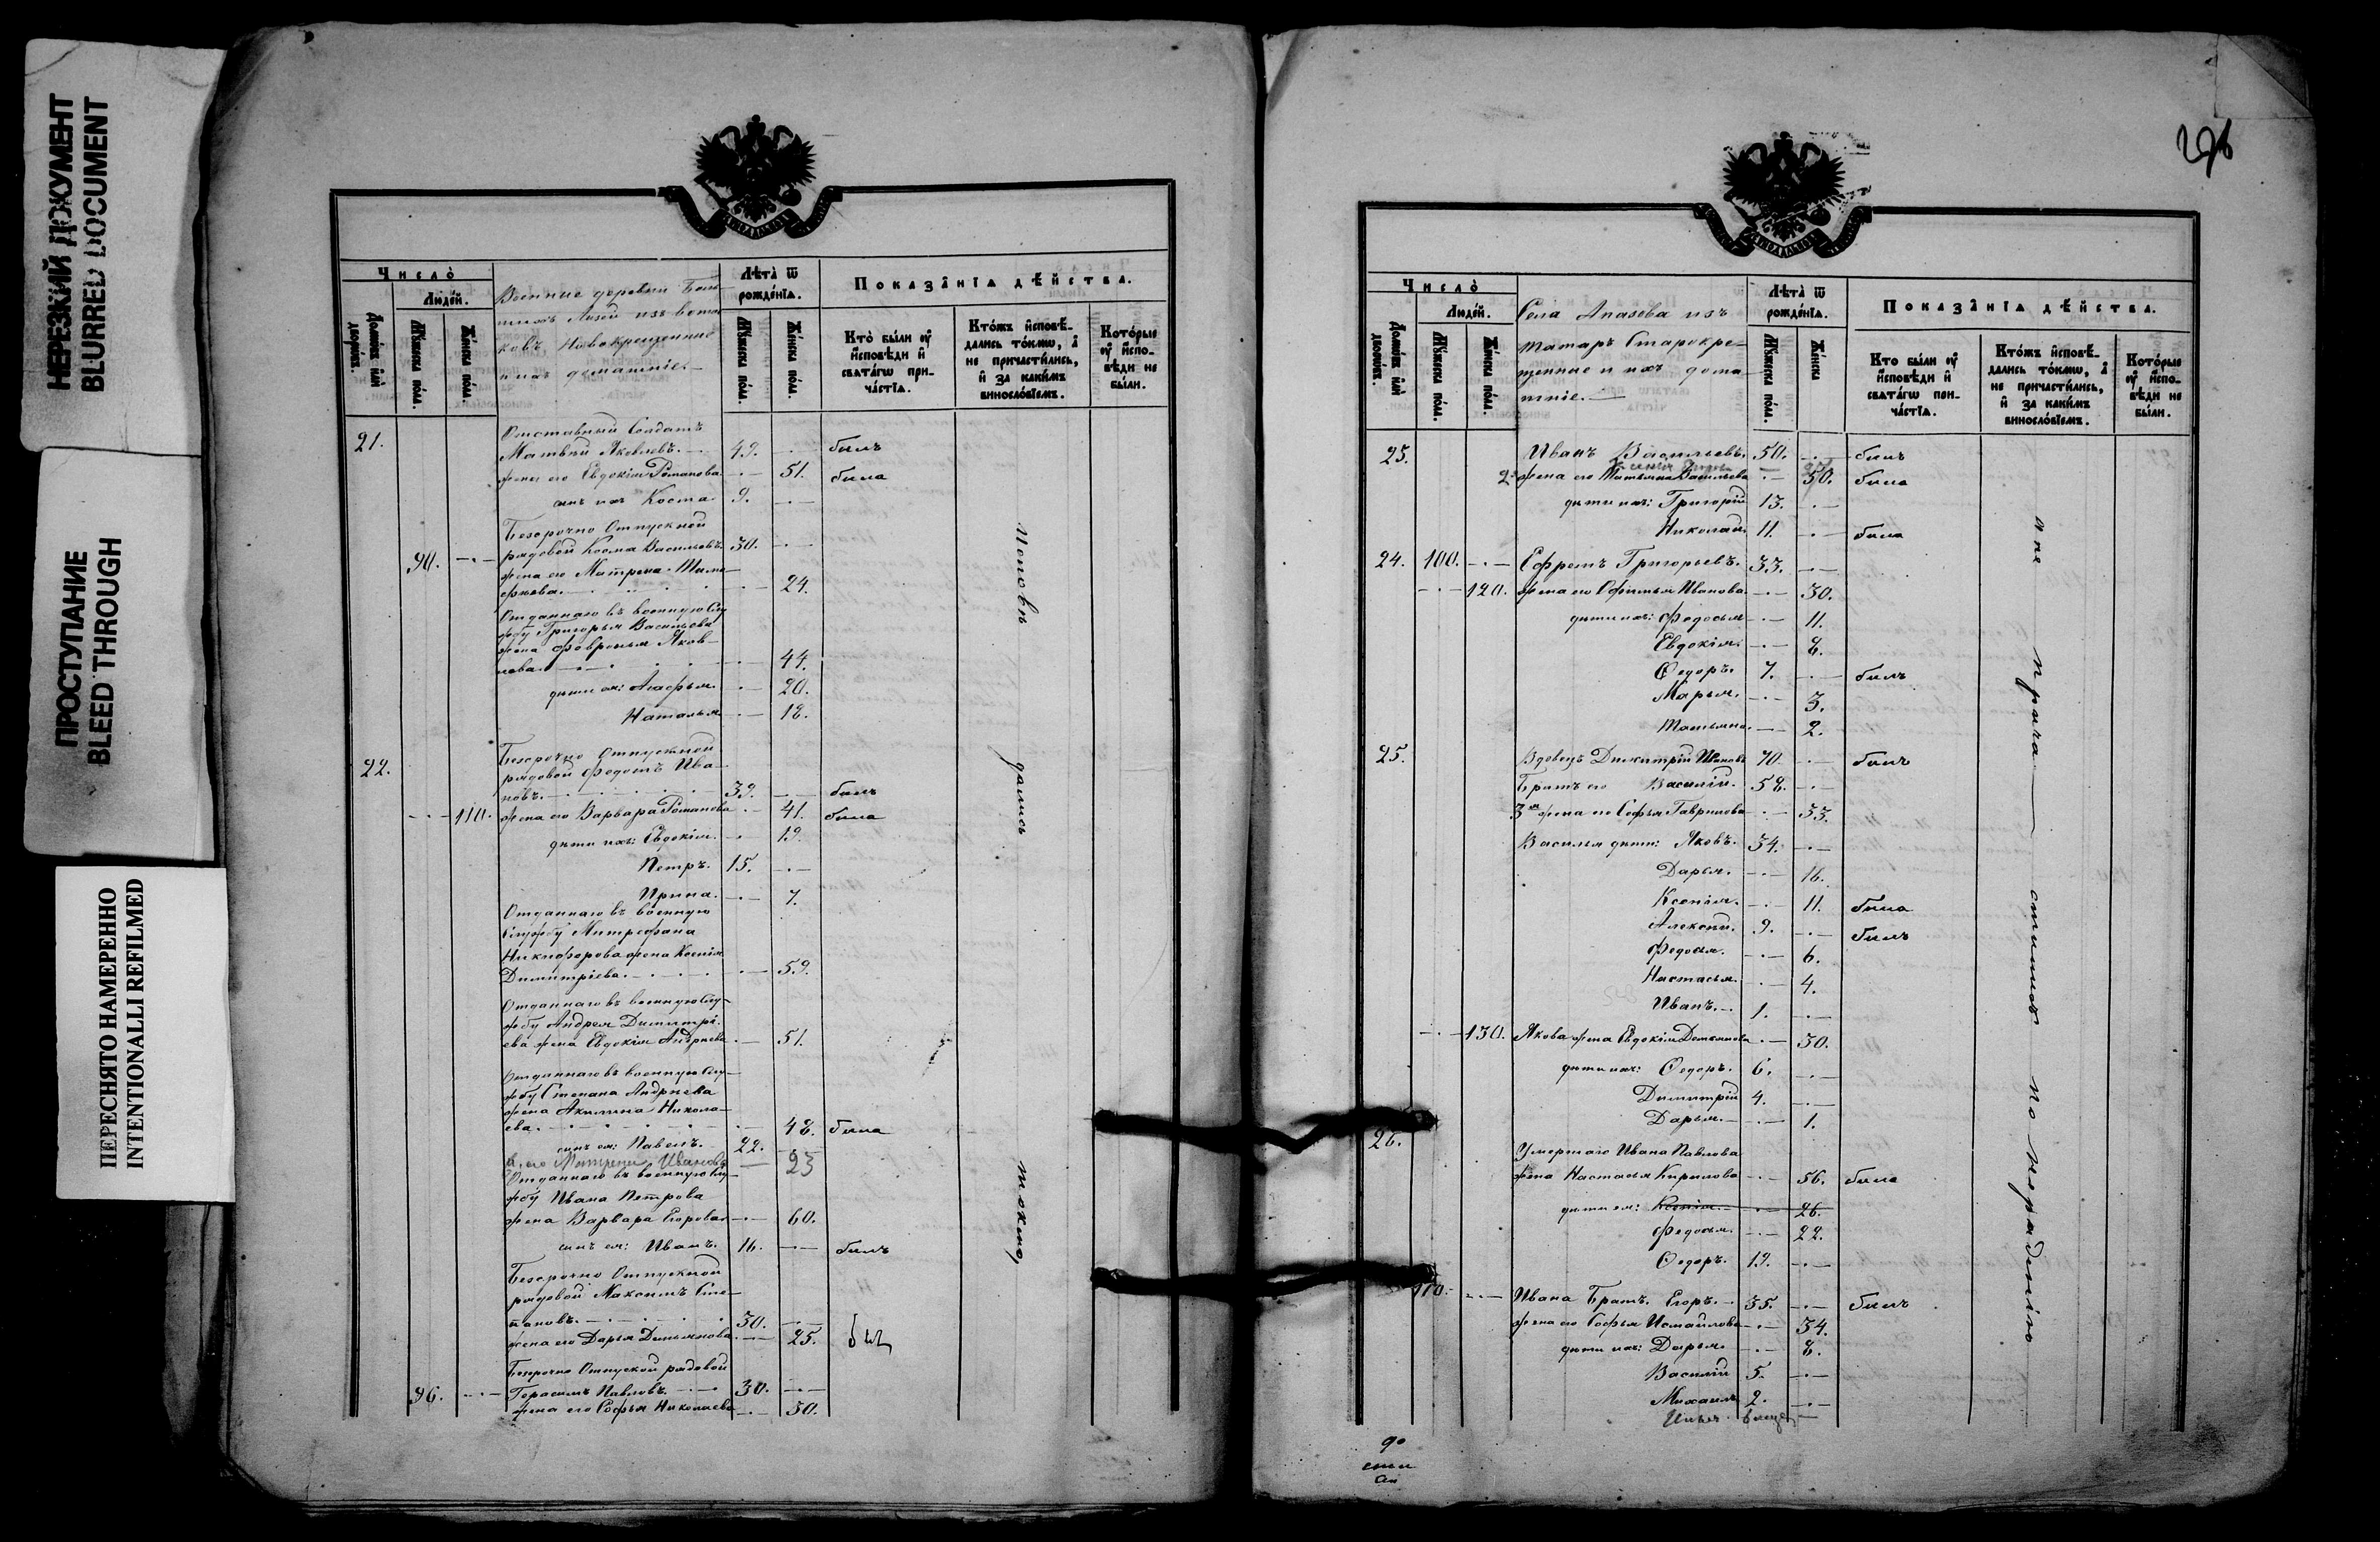 НЕРЕЗКИЙ ДОКУМЕНТ
BLURRED DOCUMENT
ПРОСТУПАНИЕ
BLEED THROUGH
ПЕРЕСНЯТО НАМЕРЕННО
INTENTIONALLI REFILMED
Число̀
Людéй.
Домóвъ и҆лѝ дворóвъ.
Мꙋ́жеска пóла.
Жéнска пóла.
Военные деревни Боль-
шихъ Лызей изъ вотя-
ковъ Новокрещенные
и ихъ домашніе.
Лѣ́та ѿ рождéнїѧ.
Мꙋ́жеска пóла.
Жéнска пóла.
Показа̂нїѧ дѣ́йства.
Ктò бы́ли ᲂу҆ и҆сповѣ́ди и҆ свѧта́гѡ при-ча́стїѧ.
Ктóжъ и҆сповѣ́-дались тóкмѡ, а҆ не причасти́лись, и҆ за каки́мъ винослóвїемъ.
Котóрые ᲂу҆ и҆спо-вѣ́ди не бы́ли.
21.
Отставный Солдатъ
Матвѣй Яковлевъ. 49. былъ
жена его Евдокія Романова 51. была
сынъ ихъ Косма 9.
Безсрочно Отпускной
90. рядовой Косма Васильевъ. 30.
жена его Матрена Тимо-
фѣева. 24.
Отданнаго въ военную слу
жбу Григорья Васильева
жена Февронья Яков-
лева. 44.
дѣти ея: Агафья. 20.
Наталья 18.
22.
Безсрочно Отпускной
рядовой Федотъ Ива-
новъ. 39. былъ
110. жена его Варвара Романова 41. была
дѣти ихъ: Евдокія. 19.
Петръ. 15.
Ирина. 7.
Отданнаго въ военную
службу Митрофана
Никифорова жена Ксенія
Димитріева. 59.
Отданнаго въ военную слу-
жбу Андрея Димитрі-
ева жена Евдокія Андреева 51.
Отданнаго въ военную слу-
жбу Степана Андреева
жена Акилина Никола-
ева. 48. была
сынъ ея: Павелъ. 22.
ж. его Матрена Иванова 23
Отданнаго въ военную слу-
жбу Ивана Петрова
жена Варвара Егорова 60.
сынъ ея: Иванъ. 16. былъ
Безсрочно Отпускной
рядовой Максимъ Сте-
пановъ. 30.
жена его Дарья Демьянова 25. был
Безсрочно Отпускной рядовой
96. Герасимъ Павловъ. 30.
жена его Софья Николаева 30.
Исповѣ дались токмо,
Число̀
Людéй.
Домóвъ и҆лѝ дворóвъ.
Мꙋ́жеска пóла.
Жéнска пóла.
Села Апазова изъ
татаръ Старокре-
щенные и ихъ дома-
шніе.
Лѣ́та ѿ рождéнїѧ.
Мꙋ́жеска пóла.
Жéнска
Показа̂нїѧ дѣ́йства.
Кто бы́ли ᲂу҆ и҆сповѣ́ди и҆ свѧта́гѡ при-ча́стїѧ.
Ктóжъ и҆сповѣ́-дались тóкмѡ, а҆ не причасти́лись, и҆ за каки́мъ винослóвїемъ.
Котóрые ᲂу҆ и҆спо-вѣ́ди не бы́ли.
23. Иванъ Васильевъ. 50. былъ
2я жена его Татьяна Васильева 50. была
дѣти ихъ: Григорій 13.
Николай. 11. была
24. 100. Ефремъ Григорьевъ. 33.
120. жена его Офимья Иванова. 30.
дѣти ихъ: Федосья 11.
Евдокія. 8.
Ѳедоръ. 7. былъ
Марья. 3.
Татьяна. 2.
25. Вдовецъ Димитрій Ивановъ 70. былъ
Братъ его Василій. 58.
3я жена его Софья Гаврилова 33.
Василья дѣти: Яковъ. 34.
Дарья. 16.
Ксенія. 11. была
Алексѣй. 9. былъ
Федосья. 6.
Настасья. 4.
Иванъ. 1.
130. Якова жена Евдокія Демьянова 30.
дѣти ихъ: Ѳедоръ. 6.
Димитрій 4.
Дарья. 1.
26.
Умершаго Ивана Павлова
жена Настасья Кирилова 56. была
дѣти ея: Ксенія. 26.
Федосья. 22.
Ѳедоръ. 19.
110. Ивана Братъ. Егоръ. 35. былъ
жена его Софья Исмаилова 34.
дѣти ихъ: Дарья. 8.
Василій 5.
Михаилъ 2.
а не прича стились по нерадѣнію